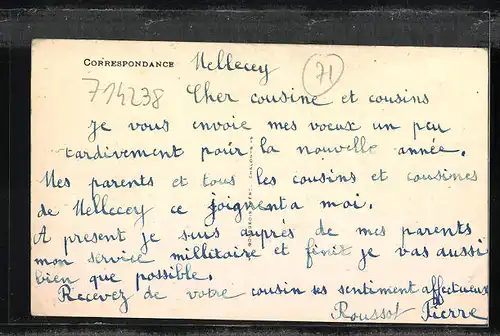 CORRESPONDANCE Mellecey
71
714238
Cher cousine et cousins
je vous envoie mes voeux un peu
tardivement pour la nouvelle année.
Mes parents et tous les cousins et cousines
de Mellecey ce joignent a moi.
A present je suis auprés de mes parents
mon service millitaire et finit je vas aussi
bien que possible.
Recevez de votre cousin ses sentiment affectueux
Roussot Pierre